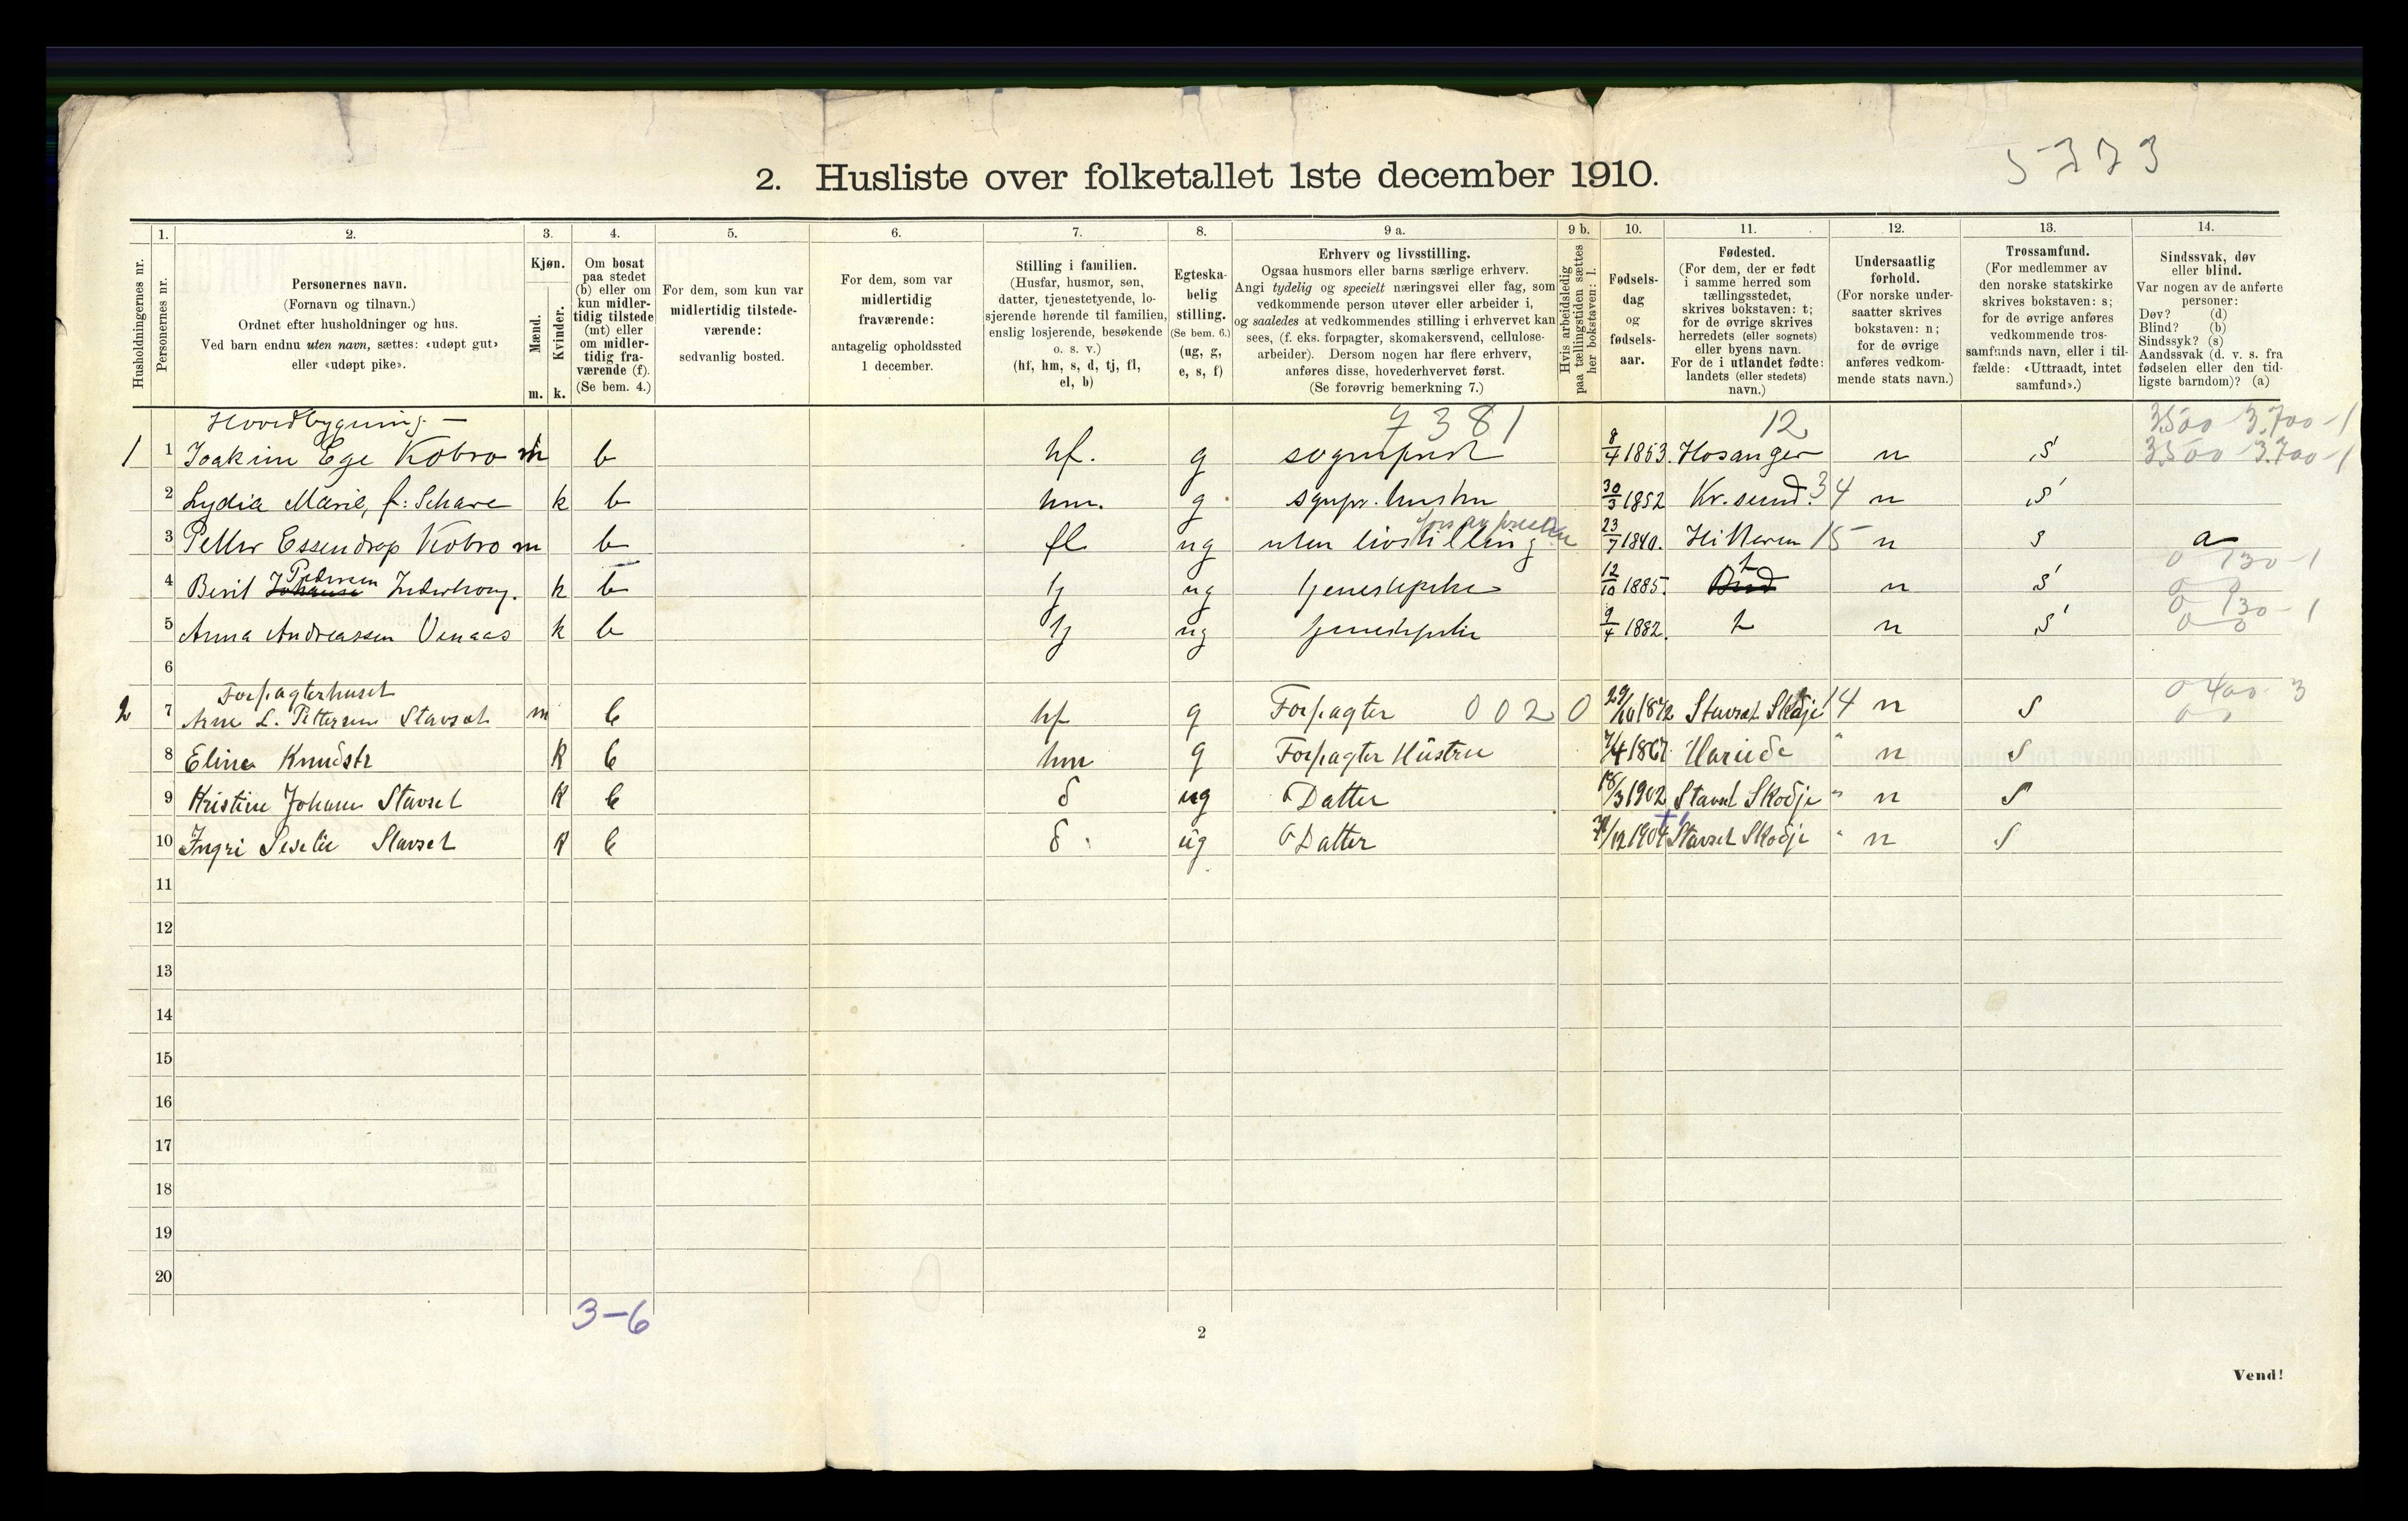 5773
2. Husliste over folketallet 1ste december 1910.
Husholdningernes nr.
1.
Personernes nr.
2.
Personernes navn.
(Fornavn og tilnavn.)
Ordnet efter husholdninger og hus.
Ved barn endnu uten navn, sættes: «udøpt gut»
eller «udøpt pike».
3.
Kjøn.
Mænd. Kvinder.
m. k.
4.
Om bosat
paa stedet
(b) eller om
kun midler-
tidig tilstede
(mt) eller
om midler-
tidig fra-
værende (f).
(Se bem. 4.)
5.
For dem, som kun var
midlertidig tilstede-
værende:
sedvanlig bosted.
6.
For dem, som var
midlertidig
fraværende:
antagelig opholdssted
1 december.
7.
Stilling i familien.
(Husfar, husmor, søn,
datter, tjenestetyende, lo-
sjerende hørende til familien,
enslig losjerende, besøkende
o. s. v.)
(hf, hm, s, d, tj, fl,
el, b)
8.
Egteska-
belig
stilling.
(Se bem. 6.)
(ug, g,
e, s, f)
9 a.
Erhverv og livsstilling.
Ogsaa husmors eller barns særlige erhverv.
Angi tydelig og specielt næringsvei eller fag, som
vedkommende person utøver eller arbeider i,
og saaledes at vedkommendes stilling i erhvervet kan
sees, (f. eks. forpagter, skomakersvend, cellulose-
arbeider). Dersom nogen har flere erhverv,
anføres disse, hovederhvervet først.
(Se forøvrig bemerkning 7.)
9 b.
Hvis arbeidsledig
paa tællingstiden sættes
her bokstaven: l.
10.
Fødsels-
dag
og
fødsels-
aar.
11.
Fødested.
(For dem, der er født
i samme herred som
tællingsstedet,
skrives bokstaven: t;
for de øvrige skrives
herredets (eller sognets)
eller byens navn.
For de i utlandet fødte:
landets (eller stedets)
navn.)
12.
Undersaatlig
forhold.
(For norske under-
saatter skrives
bokstaven: n;
for de øvrige
anføres vedkom-
mende stats navn.)
13.
Trossamfund.
(For medlemmer av
den norske statskirke
skrives bokstaven: s;
for de øvrige anføres
vedkommende tros-
samfunds navn, eller i til-
fælde: «Uttraadt, intet
samfund».)
14.
Sindssvak, døv
eller blind.
Var nogen av de anførte
personer:
Døv? (d)
Blind? (b)
Sindssyk? (s)
Aandssvak (d. v. s. fra
fødselen eller den tid-
ligste barndom)? (a)
Hovedbygning - 7381 12 3.500 3.700-1
1 1 Joakim Ege Kobro m b hf. g sogneprest 8/4 1853. Hosanger n s 3.500 3.700-1
2 Lydia Marie, f: k b hm. g sgnpr. hustru 30/3 1852 Kr.sund. 34 n s
3 Petter Essendrop Kobro m b fl ug uten livsstilling 23/7 1840. Hitteren 15 n s a
Pedersen t 0 130-1
4 Berit k b tj ug tjenestepike 12/10 1885. n s 0 0
0 130-1
5 Anna Andreassen Venaas k b tj ug tjenestepike 9/4 1882. t n s 0 0
6
Forpagterhuset 0 400 3
2 7 Arne L. Pettersen Stavset m b hf g Forpagter 002 0 29/10 1872 Stavset Skodje 14 n s 0 0
8 Eline Knudsdtr k b hm g Forpagter Hustru 7/4 1867. " n s
9 Kristine Johane Stavset k b d ug Datter 18/3 1902 Stavset Skodje " n s
10 Ingri Stavset k b d ug Datter /12 1904 Stavset Skodje " n s
11
12
13
14
15
16
17
18
19
20
3-6
2
Vend!